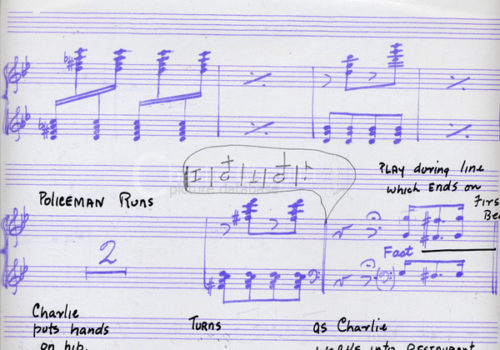 PLAY during line
which ENDS on
POLICEMAN RUNS
2
Fast
Charlie
puts hands
on hip.
TURNS
as Charlie
into RESTAURANT